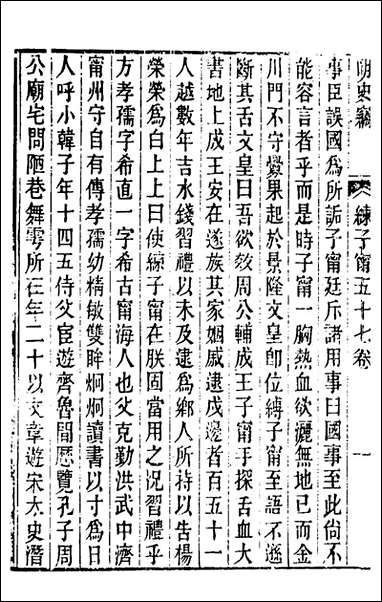 明史竊 練子甯五十七卷 一
事臣誤國為所詬子甯廷斥諸用事曰國事至此尙不
能容言者乎而是時子甯一胸熱血欲灑無地已而金
川門不守釁果起於景隆文皇卽位縛子甯至語不遜
斷其舌文皇曰吾欲效周公輔成王子甯手探舌血大
書地上成王安在遂族其家姻戚逮戍邊者百五十一
人越數年吉水錢習禮以未及逮為鄉人所持以告楊
榮榮為白上上曰使練子甯在朕固當用之況習禮乎
方孝孺字希直一字希古甯海人也父克勤洪武中濟
甯州守自有傳孝孺幼精敏雙眸炯炯讀書以寸為日
人呼小韓子年十四五侍父宦遊齊魯間歷覽孔子周
公廟宅問陋巷舞雩所在年二十以文章遊宋太史潛